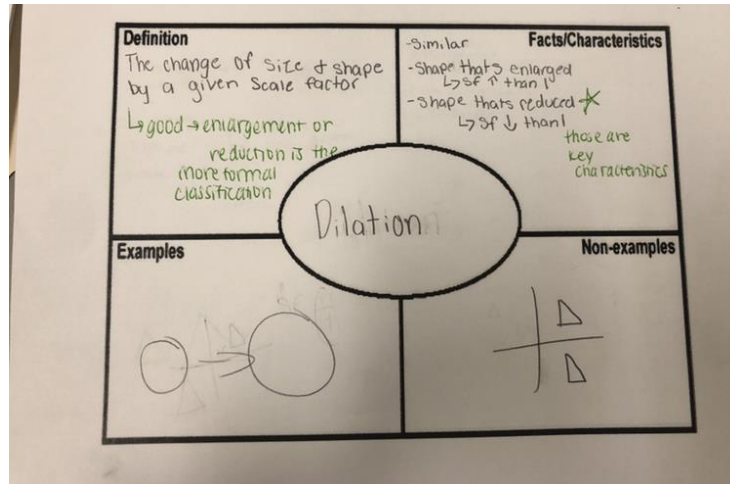 Definition
The change of size & shape
by a given scale factor
↳ good → enlargement or
reduction is the
more formal
classification
Facts/Characteristics
-Similar
-Shape thats enlarged
↳ sf ↑ than 1
-Shape thats reduced
↳ sf ↓ than 1
those are
key
characteristics
Dilation
Examples
Non-examples